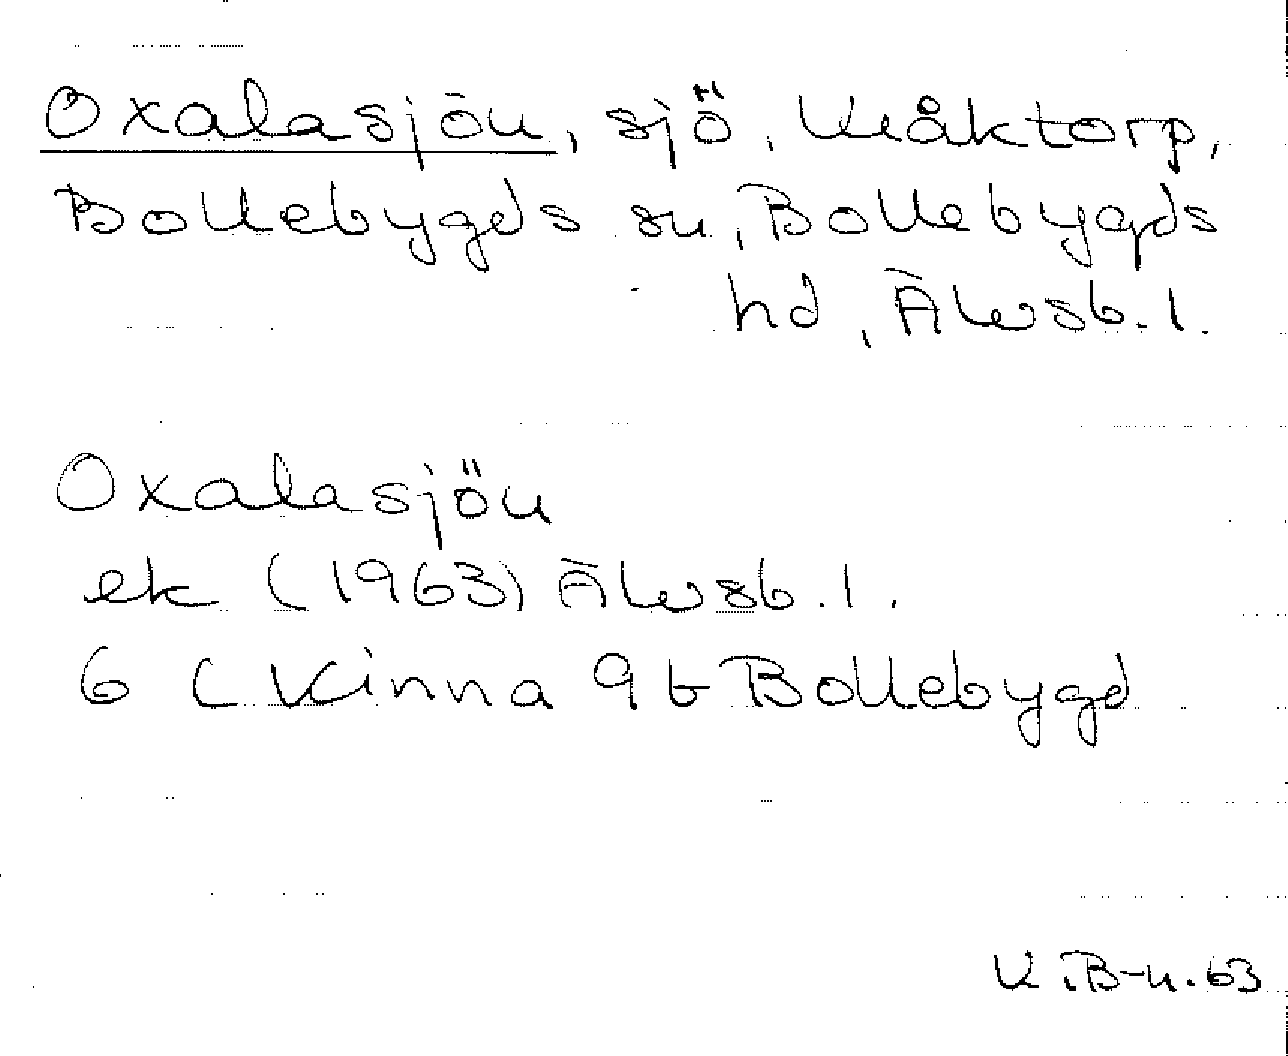 Oxalasjön, sjö, Kråktorp,
Bollebygds sn, Bollebygds
hd, Älvsb. l.
Oxalasjön
ek (1963) Älvsb. l.
6 C Kinna 9b Bollebygd
K. B-n. 63